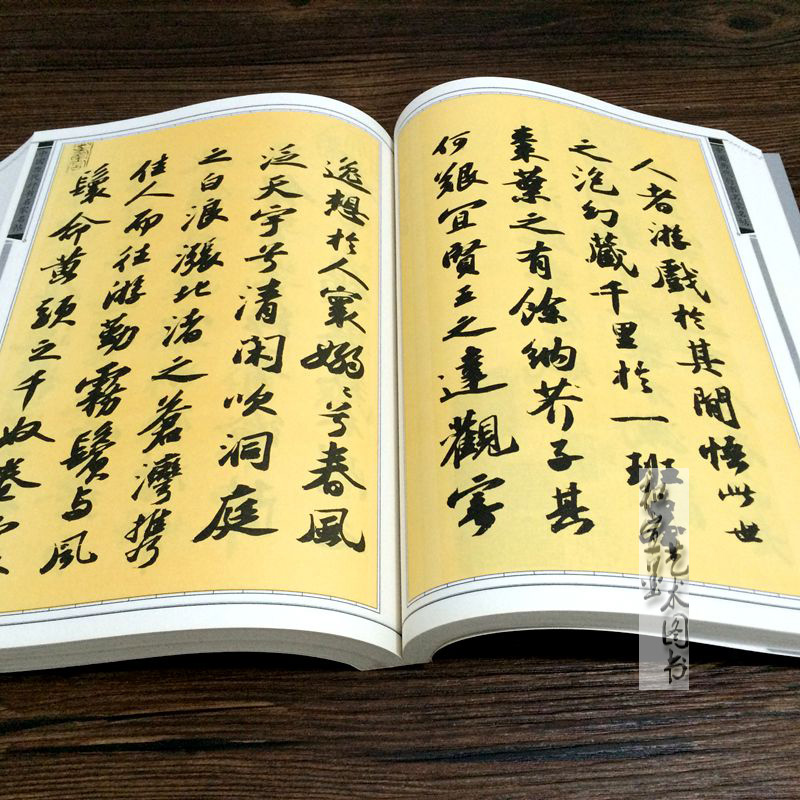 人者游戲於其間悟此世
之泡幻藏千里於一班
棗葉之有餘納芥子其
何艱宜賢王之達觀寄
逸想於人寰嫋〻兮春風
泛天宇兮清閑吹洞庭
之白浪漲北渚之蒼灣攜
佳人而往游勤霧鬢与風
鬟命黃頭之千奴卷
艺术图书